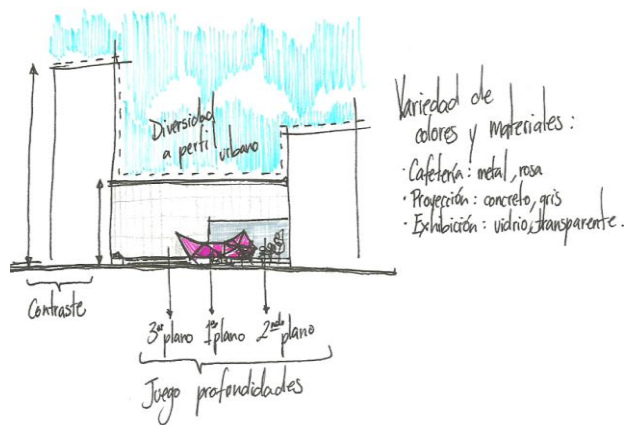 Diversidad
a perfil
urbano
Variedad de
colores y materiales:
· Cafetería: metal, rosa
· Proyección: concreto, gris
· Exhibición: vidrio, transparente.
Contraste
3er plano 1er plano 2ndo plano
Juego profundidades